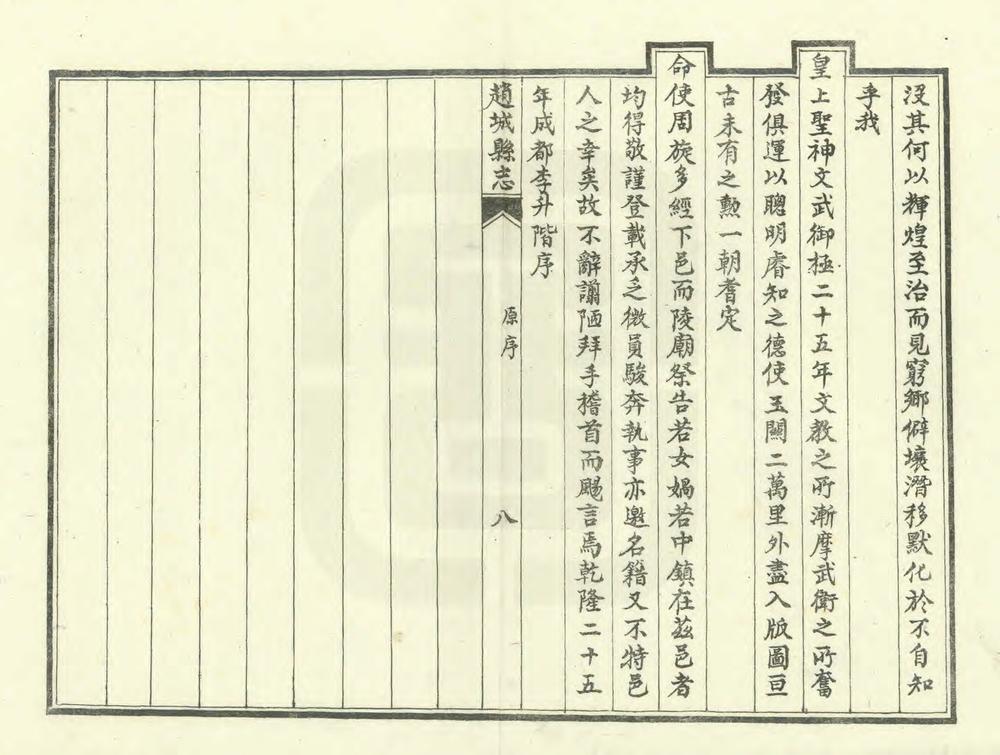 沒其何以輝煌至治而見窮鄉僻壤潛移默化於不自知
乎我
皇上聖神文武御極二十五年文教之所漸摩武衛之所奮
發俱運以聰明睿知之德使玉關二萬里外盡入版圖亘
古未有之勲一朝耆定
命使周旋多經下邑而陵廟祭告若女媧若中鎮在茲邑者
均得敬謹登載承乏微員駿奔執事亦邀名籍又不特邑
人之幸矣故不辭謭陋拜手稽首而颺言焉乾隆二十五
年成都李升階序
趙城縣志
原序
八